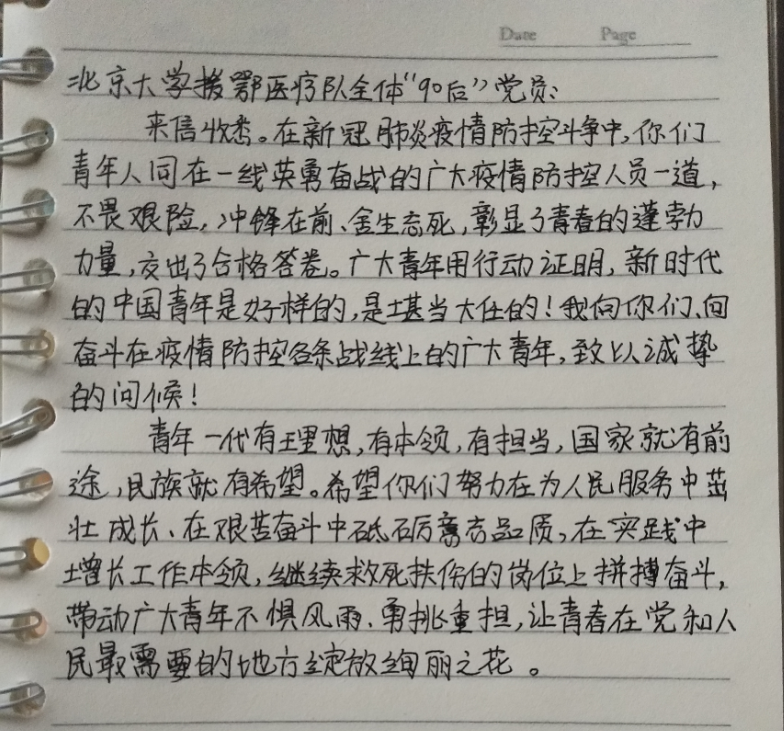 Date Page
北京大学援鄂医疗队全体“90后”党员：
来信收悉。在新冠肺炎疫情防控斗争中，你们
青年人同在一线英勇奋战的广大疫情防控人员一道，
不畏艰险，冲锋在前、舍生忘死，彰显了青春的蓬勃
力量，交出了合格答卷。广大青年用行动证明，新时代
的中国青年是好样的，是堪当大任的！我向你们、向
奋斗在疫情防控各条战线上的广大青年，致以诚挚
的问候！
青年一代有理想，有本领，有担当，国家就有前
途，民族就有希望。希望你们努力在为人民服务中茁
壮成长、在艰苦奋斗中砥砺意志品质，在实践中
增长工作本领，继续救死扶伤的岗位上拼搏奋斗，
带动广大青年不惧风雨、勇挑重担，让青春在党和人
民最需要的地方绽放绚丽之花。